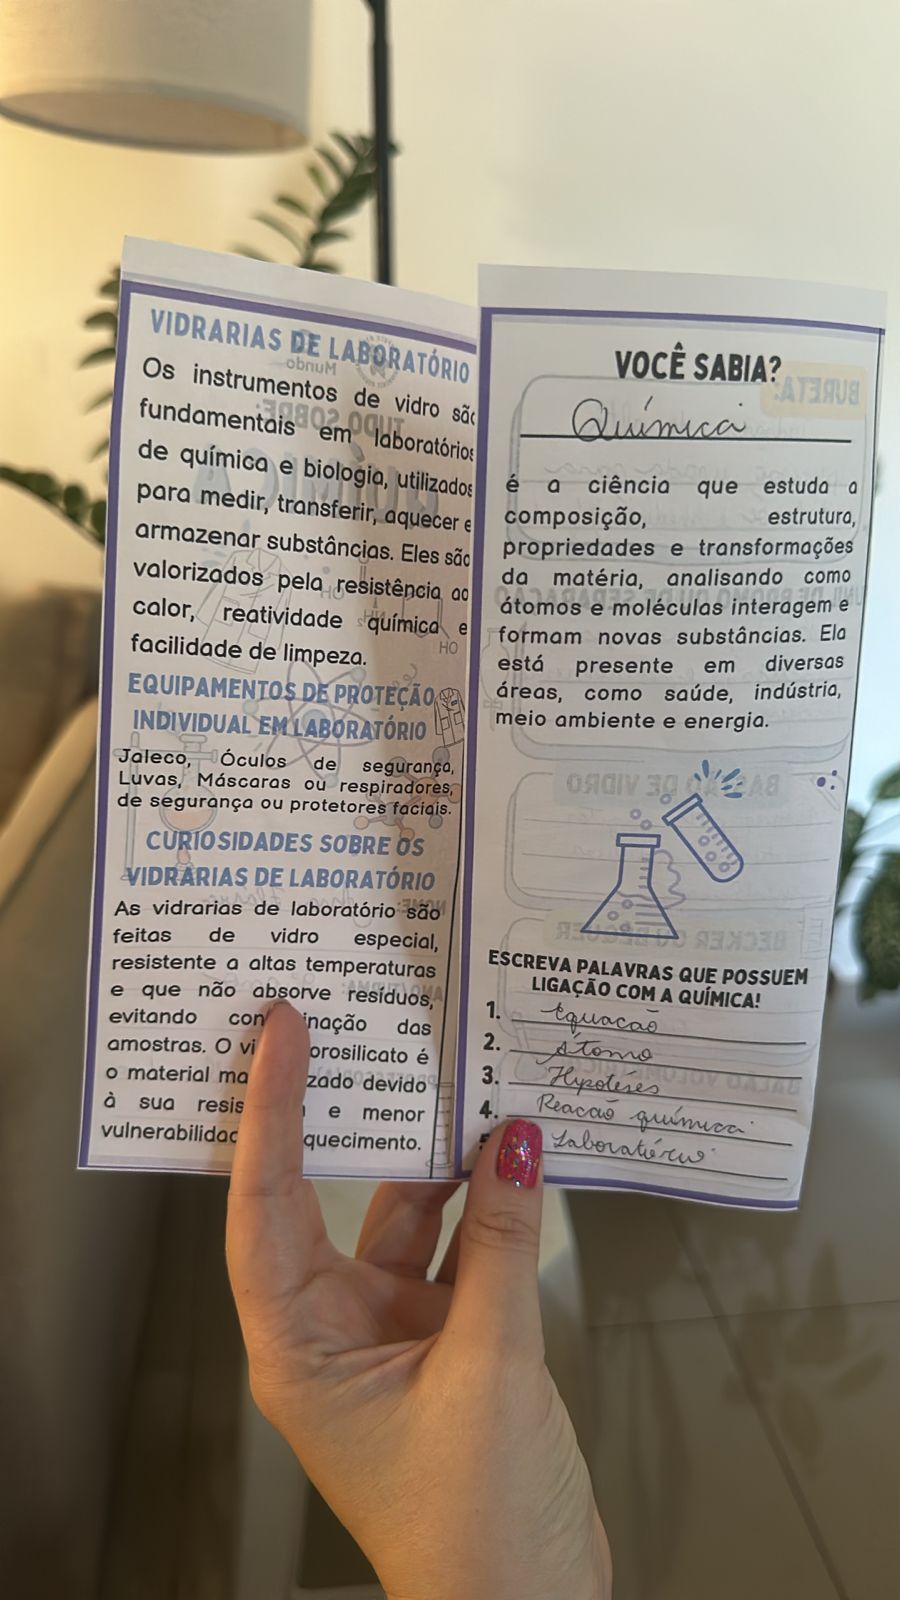 VIDRARIAS DE LABORATÓRIO
Os instrumentos de vidro são
fundamentais em laboratórios
de química e biologia, utilizados
para medir, transferir, aquecer e
armazenar substâncias. Eles são
valorizados pela resistência ao
calor, reatividade química e
facilidade de limpeza.
EQUIPAMENTOS DE PROTEÇÃO
INDIVIDUAL EM LABORATÓRIO
Jaleco, Óculos de segurança,
Luvas, Máscaras ou respiradores,
de segurança ou protetores faciais.
CURIOSIDADES SOBRE OS
VIDRARIAS DE LABORATÓRIO
As vidrarias de laboratório são
feitas de vidro especial,
resistente a altas temperaturas
e que não absorve resíduos,
evitando das
amostras. O é
o material devido
à sua e menor
VOCÊ SABIA?
Química
é a ciência que estuda a
composição, estrutura,
propriedades e transformações
da matéria, analisando como
átomos e moléculas interagem e
formam novas substâncias. Ela
está presente em diversas
áreas, como saúde, indústria,
meio ambiente e energia.
ESCREVA PALAVRAS QUE POSSUEM
LIGAÇÃO COM A QUÍMICA!
1. Equacão
2. Átomo
3. Hipóteses
4. Reacão química
Laboratório
BURETA:
BASTÃO DE VIDRO
BECKER OU BEQUER
TUDO SOBRE:
QUÍMICA
Mundo
OH